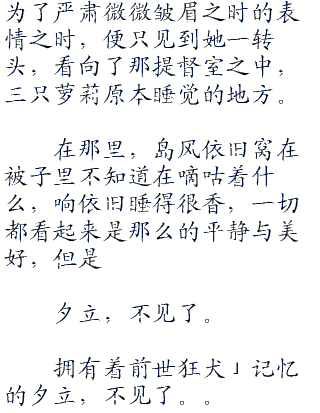 为了严肃微微皱眉之时的表
情之时，便只见到她一转
头，看向了那提督室之中，
三只萝莉原本睡觉的地方。
在那里，岛风依旧窝在
被子里不知道在嘀咕着什
么，响依旧睡得很香，一切
都看起来是那么的平静与美
好，但是
夕立，不见了。
拥有着前世狂犬」记忆
的夕立，不见了。。